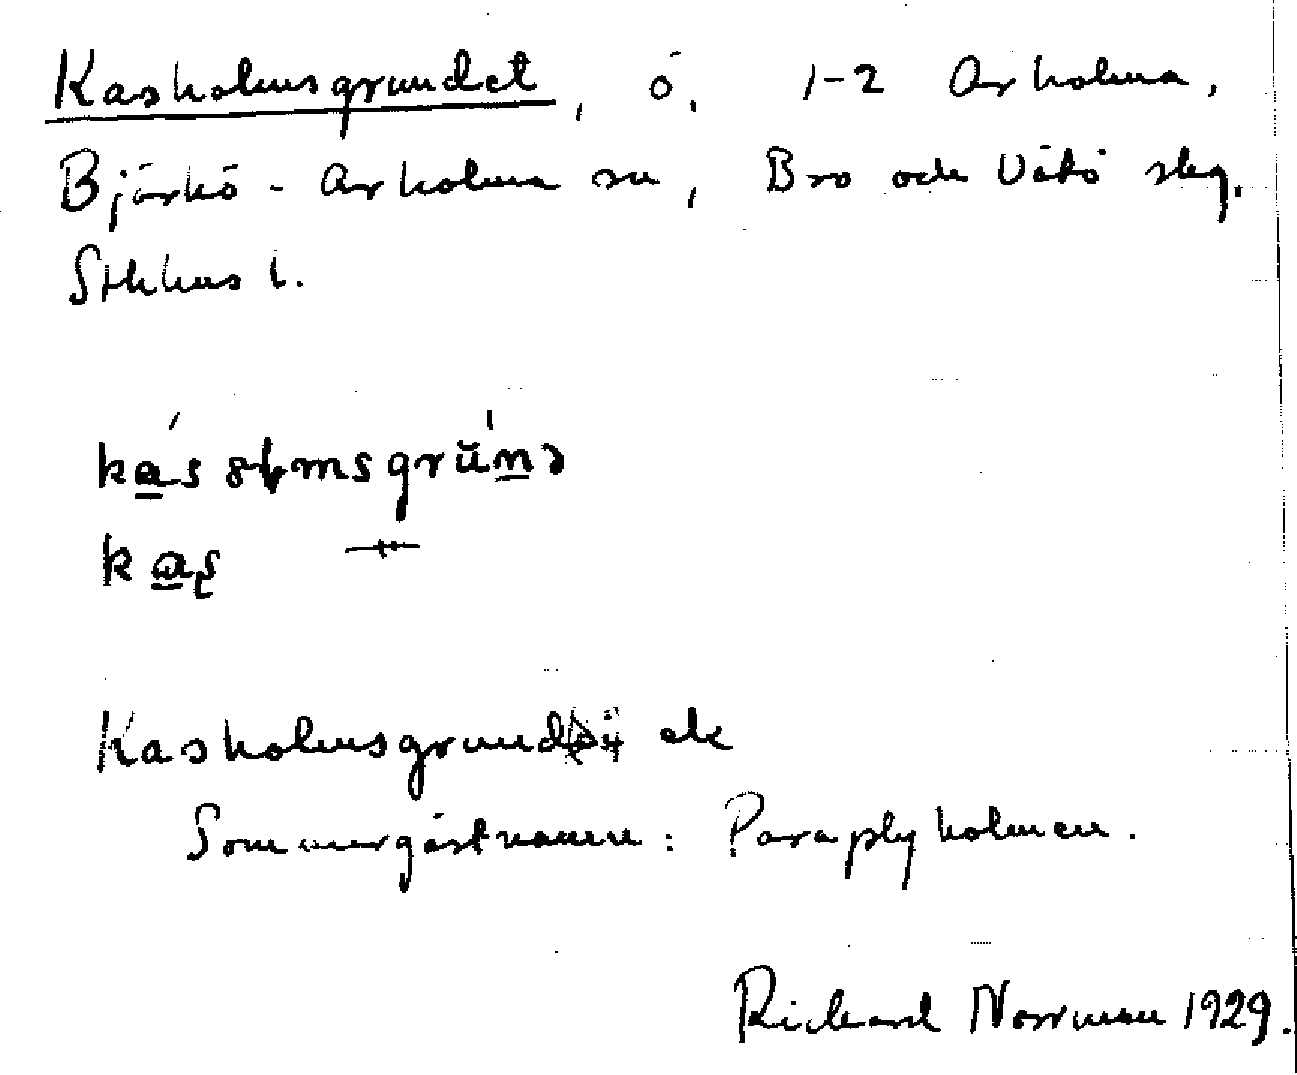 Kasholmsgrundet, ö, 1-2 Arholma,
Björkö - Arholma sn, Bro och Vätö skg,
Sthlms l.
Kasholmsgrund ek
Sommargästnamn: Paraplyholmen.
Richard Norrman 1929.